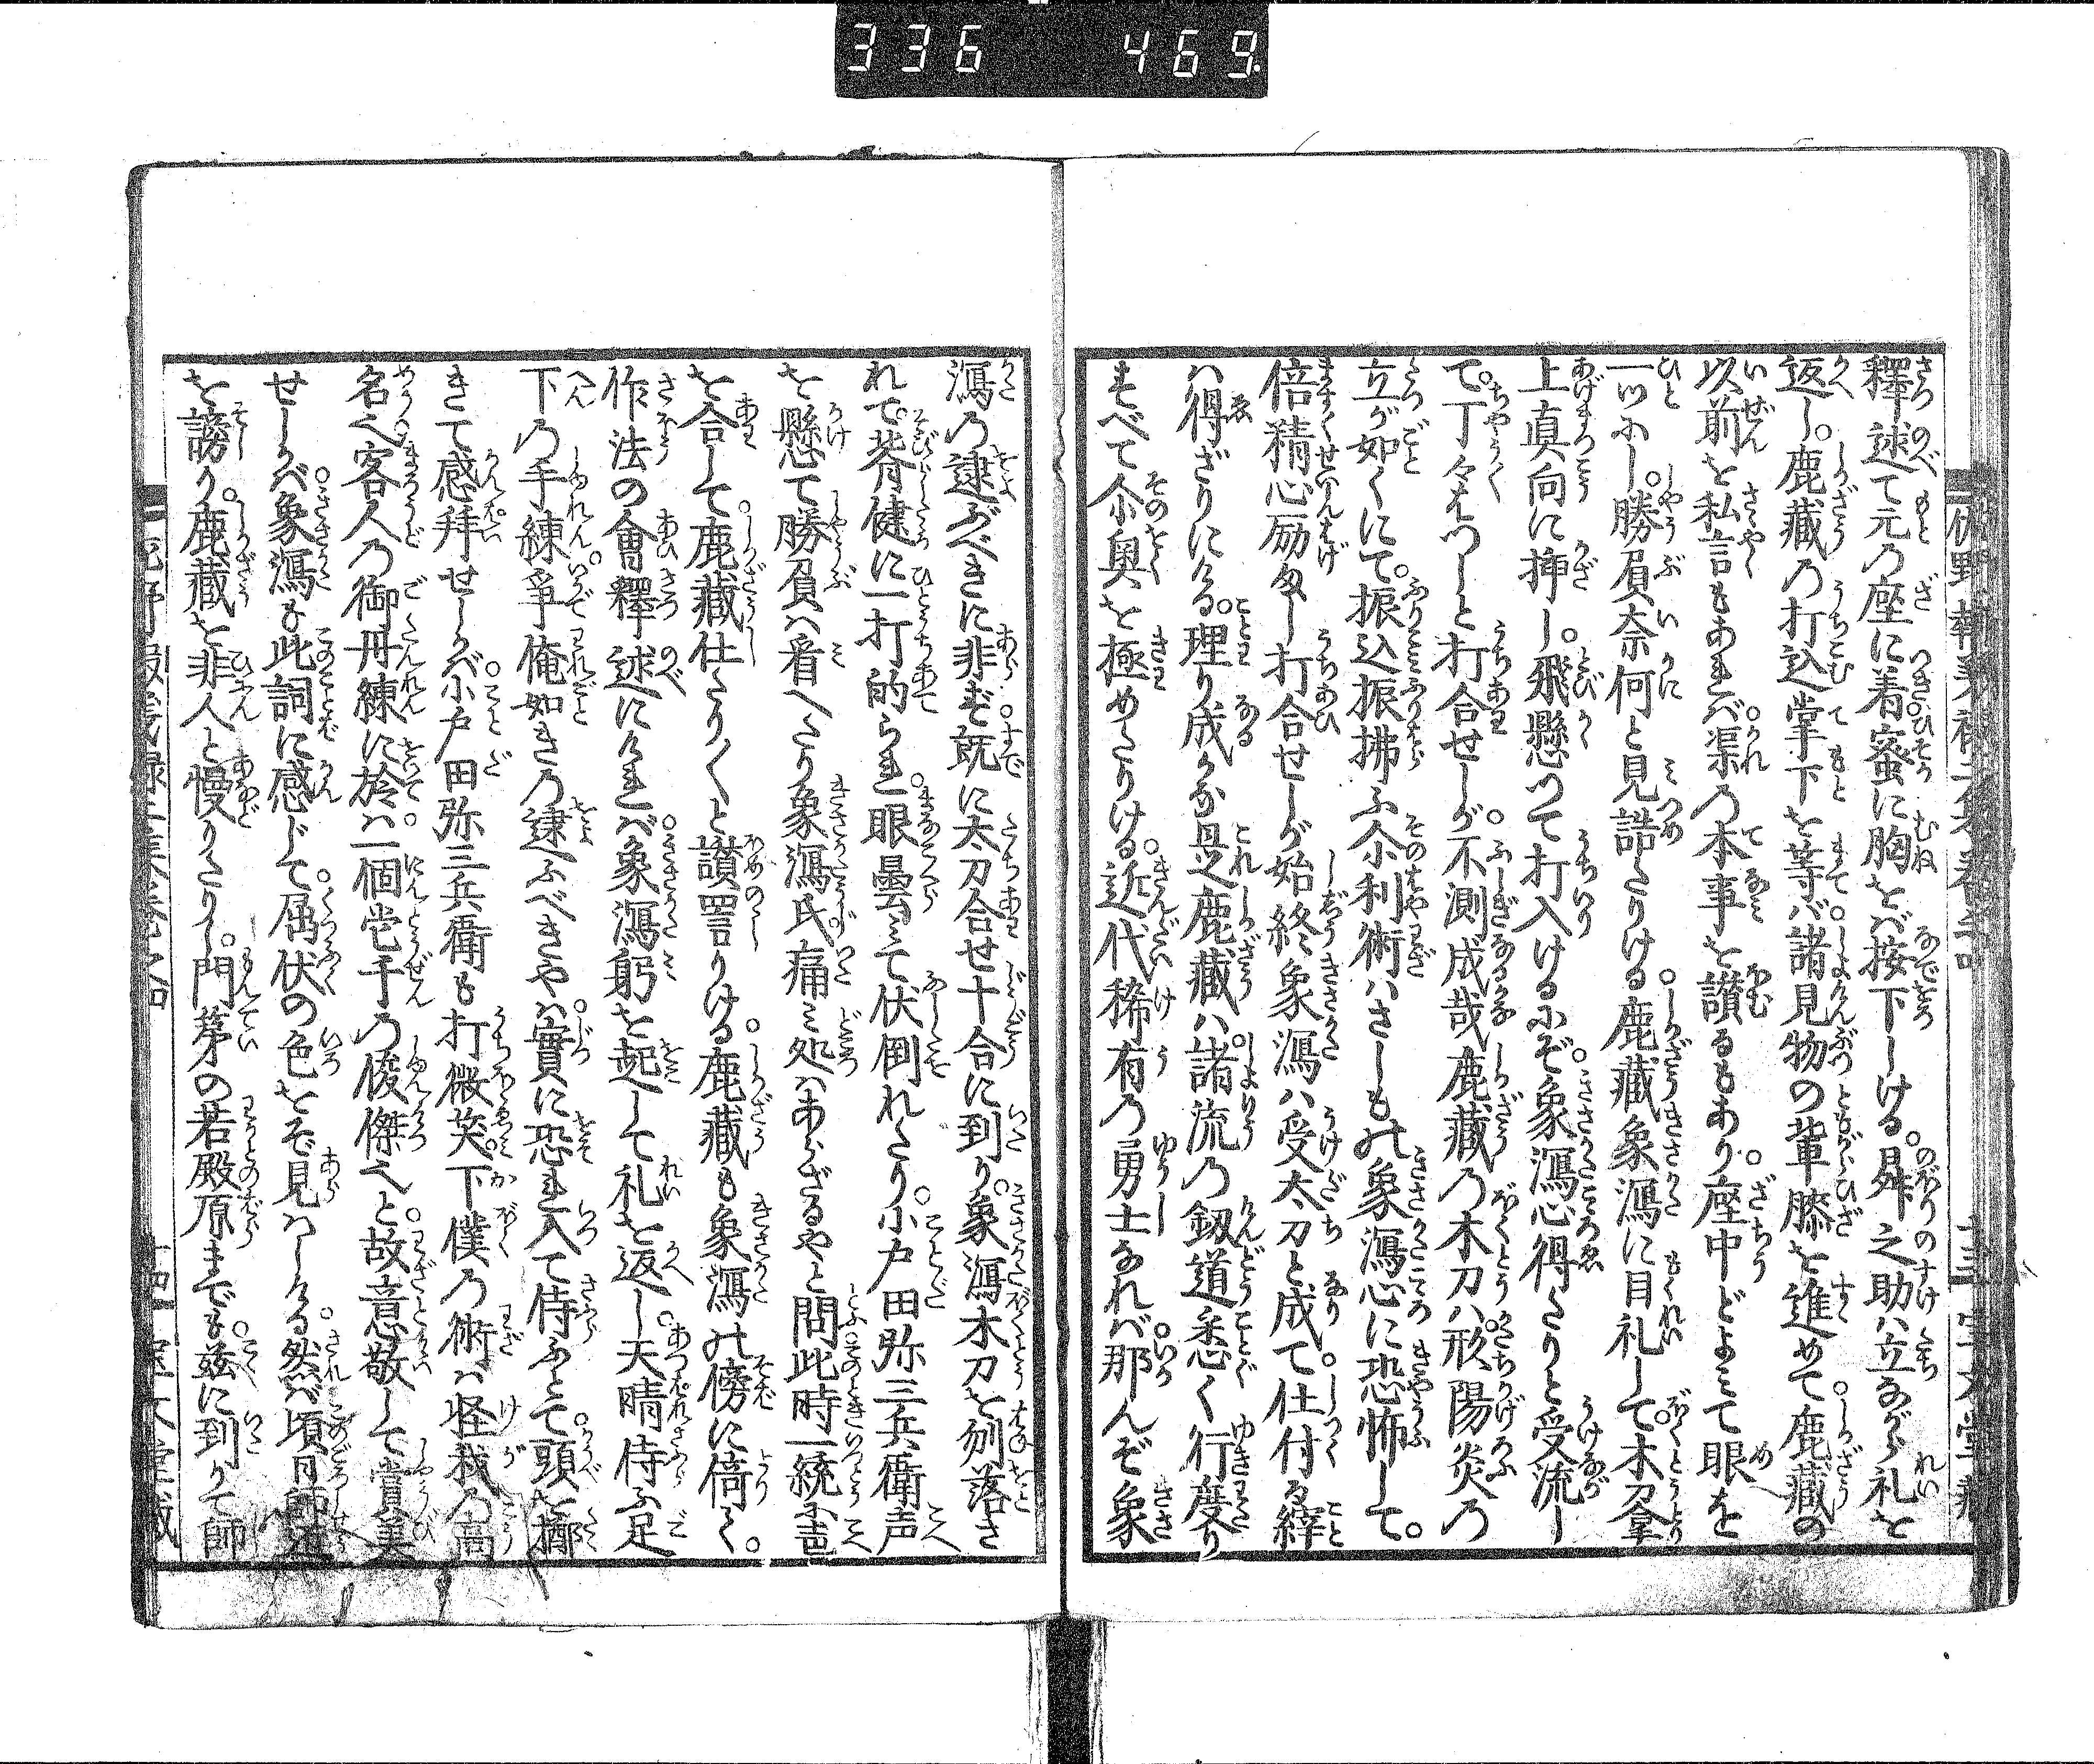 336 469
釋述て元の座に着密に胸をば按下しける。舜之助は立ながら礼を
返し。鹿藏の打込掌下を等ば諸見物の輩膝を進めて鹿藏の
以前を私言もあれば渠の本事を讃るもあり座中どよみて眼を
一ツにし。勝負奈何と見詰たりける鹿藏象潟に目礼して木刀拿
上真向に揷し。飛懸つて打入けるにぞ象潟心得たりと受流し
て。丁々はつしと打合せしが不測成哉鹿藏の木刀は形陽炎の
立が如くにて。振込振拂ふ尒利術はさしもの象潟心に恐怖して。
倍精心励まし打合せしが始終象潟は受太刀と成て仕付る縡
は得ざりにける。理り成かな是鹿藏は諸流の釼道悉く行度り
すべて尒奥を極めたりける。近代稀有の勇士なれば那んぞ象
潟の逮ぶべきに非ず既に太刀合せ十合に到り。象潟木刀を刎落さ
れて。脊健に一打的られ眼曇みて伏倒れたり。小戸田弥三兵衛声
を懸て勝負は看へたり象潟氏痛み処はあらざるやと問此時一統に声
を合して鹿藏仕たり〳〵と讃詈りける鹿藏も象潟の傍に倚て。
作法の會釋述にければ象潟躬を起して礼を返し天晴侍ふ足
下の手練爭俺如きの逮ふべきや實に恐れ入て侍ふとて。頭を擲
きて感拜せしが小戸田弥三兵衛も打微笑。下僕の術は怪我の高
名之客人の御丹練に於は一個當千の俊傑之と故意敬して賞美
せしかば象潟も此詞に感じて屈伏の色をぞ見はしける然ば頃日師道
を謗り。鹿藏を非人と慢りたりし。門苐の若殿原までも。玆に到りて師